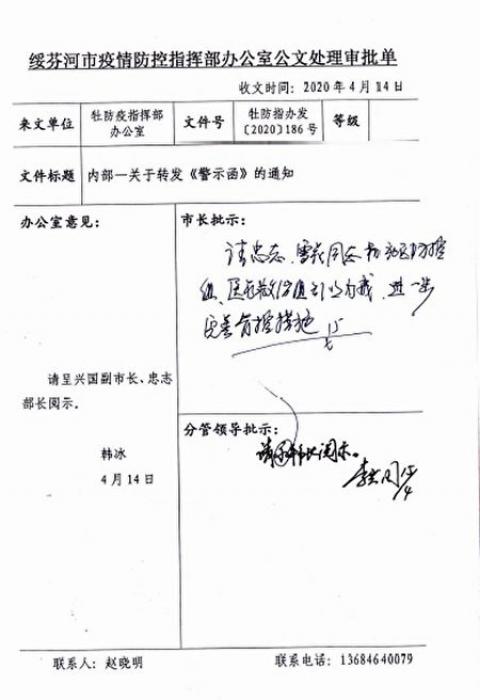 绥芬河市疫情防控指挥部办公室公文处理审批单
收文时间：2020年4月14日
来文单位 牡防疫指挥部办公室 文件号 牡防指办发〔2020〕186号 等级
文件标题 内部—关于转发《警示函》的通知
办公室意见：
请呈兴国副市长、忠志
部长阅示。
韩冰
4月14日
市长批示：
请忠志、
引以为戒，进一步
完善管控措施 15/4
分管领导批示：
阅示。
联系人：赵晓明 联系电话：13684640079